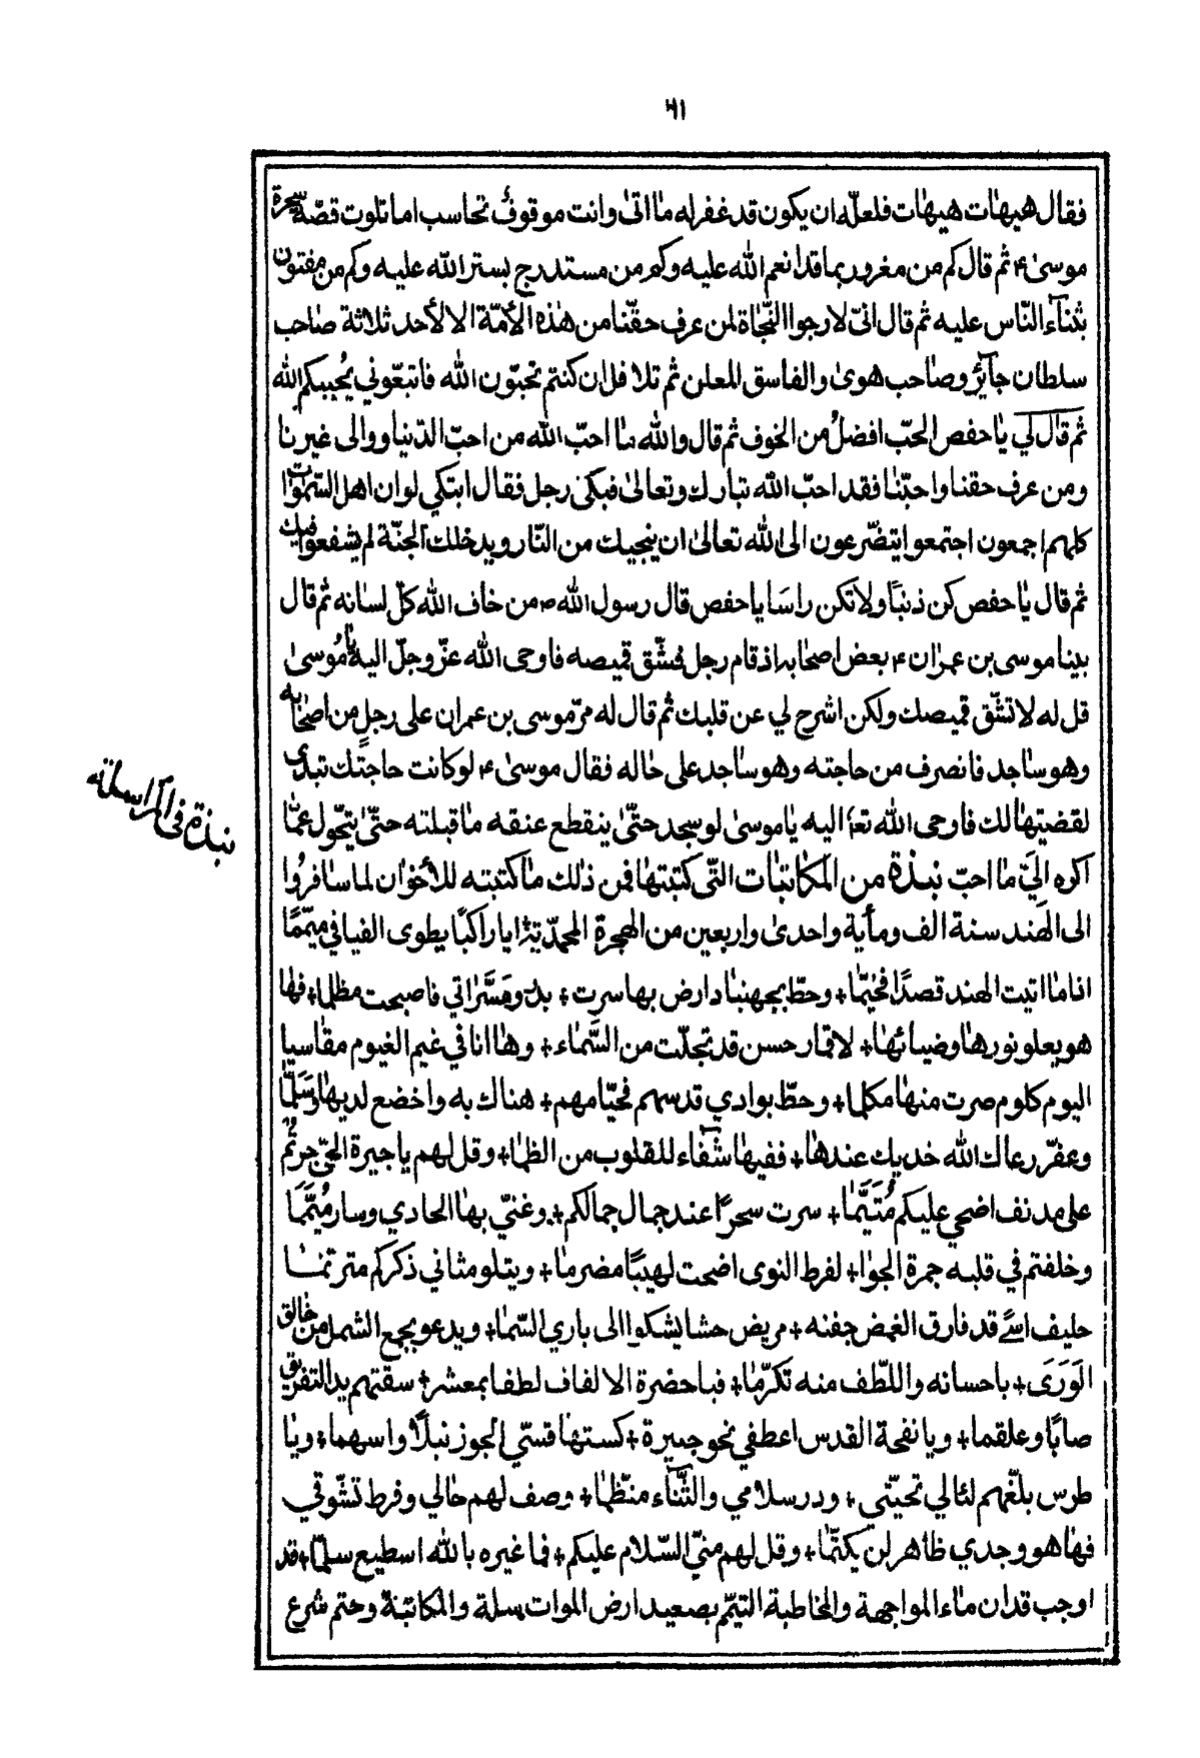 ٦١
فقال هيهات هيهات فلعلّه ان يكون قد غفر له ما اتى وانت موقوف تحاسب اما تلوت قصّة سحرة
موسىٰ ۴ ثم قال كم من مغرور بما قد انعم الله عليه وكم من مستدرج بستر الله عليه وكم من مفتون
بثناء النّاس عليه ثم قال انّي لارجوا النّجاة لمن عرف حقّنا من هذه الأمّة الا لأحد ثلاثة صاحب
سلطان جآئر وصاحب هوىٰ والفاسق المعلن ثم تلا قل ان كنتم تحبّون الله فاتبعوني يحببكم الله
ثم قال لي يا حفص الحبّ افضل من الخوف ثم قال والله ما احبّ الله من احبّ الدّنيا ووالى غيرنا
ومن عرف حقنا واحبّنا فقد احبّ الله تبارك وتعالىٰ فبكى رجل فقال ابتكي لو ان اهل السّموات
كلهم اجمعون اجتمعوا يتضّرعون الى الله تعالىٰ ان ينجيك من النّار ويدخلك الجنّة لم يشفعوا فيك
ثم قال يا حفص كن ذنبًا ولا تكن راسًا يا حفص قال رسول الله ص من خاف الله كلّ لسانه ثم قال
بينا موسى بن عمران ۴ بعض اصحابه اذ قام رجل فشّق قميصه فاوحى الله عزّ وجلّ اليه يا موسىٰ
قل له لا تشّق قميصك ولكن اشرح لي عن قلبك ثم قال له مرّ موسى بن عمران على رجل من اصحابه
وهو ساجد فانصرف من حاجته وهو ساجد على حاله فقال موسىٰ ۴ لو كانت حاجتك بيدي
لقضيتها لك فاوحى الله تعا اليه يا موسىٰ لو سجد حتّىٰ ينقطع عنقه ما قبلته حتّىٰ يتحّول عمّا
اكره الى ما احبّ نبذة من المكاتبات التّي كتبتها فمن ذلك ما كتبته للأخوان لما سافروا
الى الهند سنة الف ومأية واحدىٰ واربعين من الهجرة المحمدّيّة ايا راكبًا يطوى الفيافي ميمّمًا
اذا ما اتيت الهند قصدًا فخيّما + وحطّ بجهنبادارض بها سرت + بدور مسّراتي فاصبحت مظلما + فها
هو يعلو نورها وضيائها + لاقمار حسن قد تجلّت من السّماء + وها انا في غيم الغيوم مقاسيا
اليوم كلوم صرت منها مكلما + وحطّ بوادي قدسهم فخيامهم + هناك به واخضع لديها وسلّما
وعفّر رعاك الله خديك عندها + ففيها شفاء للقلوب من الظما + وقل لهم يا جيرة الحيّ جرتم
على مدنف اضحى عليكم متيّما + سرت سحرًا عند جمال جمالكم + وغنّي بها الحادي وسار ميمّما
وخلفتم في قلبه جمرة الجوا + لفرط النوى اضحت لهيبًا مضرما + ويتلو مثاني ذكركم مترنما
حليف اسىً قد فارق الغمض جفنه + مريض حشا يشكوا الى باري السّما + ويدعو بجمع الشمل من خالق
الورى + باحسانه واللّطف منه تكرّما + فيا حضرة الالفاف لطفا بمعشر + سقتهم يد التفريق
صابًا وعلقما + ويا نفحة القدس اعطفي نحو جيرة + كستها قسّي الجوز نبلاً واسهما + ويا
طرس بلّغهم لئالي تحيّتي + ودر سلامي والثّناء منّظما + وصف لهم حالي وفرط تشّوقي
فها هو وجدي ظاهر لن يكتّما + وقل لهم منيّ السّلام عليكم + فما غيره بالله اسطيع سلّما + قد
اوجب فقدان ماء المواجهة والمخاطبة التيّمم بصعيد ارض الموات سلة والمكاتبة وحتم شرع
نبذة في المراسلة